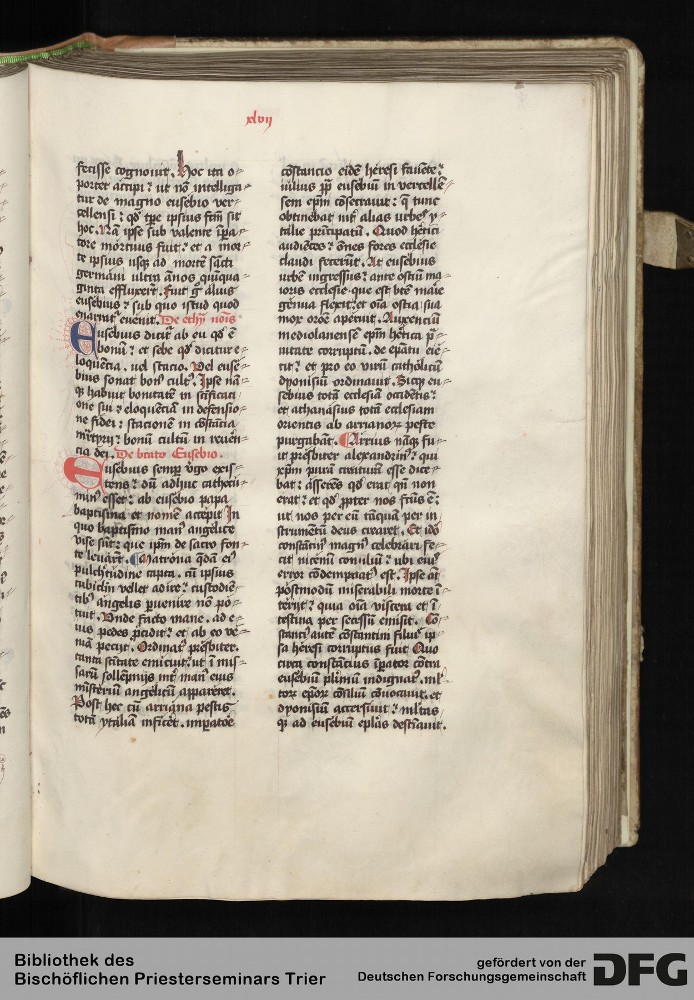 xlvij
fecisse cognouit. Hoc ita o-
portet accipi: ut nõ intelliga-
tur de magno eusebio ver-
cellensi: qd tpe ipsius fcm sit
hoc. Nã ipse sub valente ipa-
tore mortuus fuit: et a mor-
te ipsius usq ad mortẽ scti
germani ultra ãnos quiqua-
ginta effluxert. Fuit g alius
eusebius: sub quo istud quod
enarrat euenit. De ethy nois
Eusebius dicit ab eu qd ẽ
bonũ: et sebe qd dicitur e-
loquẽcia. uel stacio. Vel euse-
bius sonat bon cult. Ipse nã-
q habuit bonitatẽ in scificati
one sui: eloquẽtiam in defensio-
ne fidei: stacionem in cõstãcia
mrtyrij: bonũ cultũ in reuẽn-
cia dei. De beato Eusebio.
Eusebius semp vgo exis-
tens: dũ adhuc cathecu-
min esset: ab eusebio papa
baptisma et nomẽ accepit In
quo baptismo man angelice
vise sũt: que ipm de sacro fon-
te leuãrt. Matrona qdã ei
pulchitudine capta. cũ ipsius
cubiclm vellet adire: custodiẽ-
tib angelis puenire nõ po-
tuit. Vnde facto mane. ad e-
ius pedes pcidit: et ab eo ve-
niã peciit. Ordinat presbiter.
tanta scitate emicuit: ut i mis-
sarũ sollẽpnijs int man eius
misteriũ angelicũ appareret.
Post hec cũ arriana pestis
totã ytaliam inficet. imperatoe
cõstancio eidẽ heresi fauẽte:
iulius pp eusebiũ in vercelle-
sem epm cõsecrauit: q tunc
obtinebat int alias urbes y-
talie pricipatũ. Quod hetici
audiẽtes: õnes fores ecclesie
claudi fecerũt. At eusebius
urbẽ ingressus: ante ostiũ ma-
ioris ecclesie que est bte marie
genua flexit: et oia ostia sua
mox oroẽ aperuit. Auxenciũ
mediolanensẽ epm hetica p-
uitate corruptũ. de epatu eie-
cit: et pro eo virũ catholicũ
dyonisiũ ordinauit. Sicq eu-
sebius totã ecclesiã occidẽtis:
et athanasius totã ecclesiam
orientis ab arrianor peste
purgabãt. Arrius nãq fu-
it presbiter alexandrin: qui
xpm purã creaturã esse dice-
bat: asserẽs qd erat qñ non
erat: et qd ppter nos ftus ẽ:
ut nos per eũ tãquã per in-
strumẽtũ deus crearet. Et ido
constãtin magn celebrari fe-
cit nicenũ conciliũ: ubi eius
error cõdempnat est. Ipse at
postmodũ miserabili morte i-
terijt: quia oia viscera et i-
testina per secessũ emisit. Cõ-
stanci aute cõstantini filius ip-
sa heresi corruptus fuit Quo
circa constãcius ipator cõtra
eusebiũ plimũ indignat. ml-
tor epor cõsiliũ cõuocauit. et
dyonisiũ accersiuit: mltas
q ad eusebiũ eplas destiauit.
Bibliothek des
Bischöflichen Priesterseminars Trier
gefördert von der
Deutschen Forschungsgemeinschaft
DFG